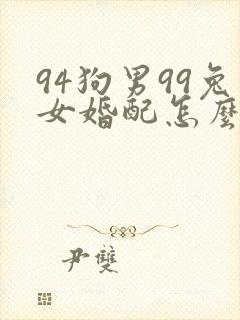 94狗男99兔
女婚配怎麼
尹雙